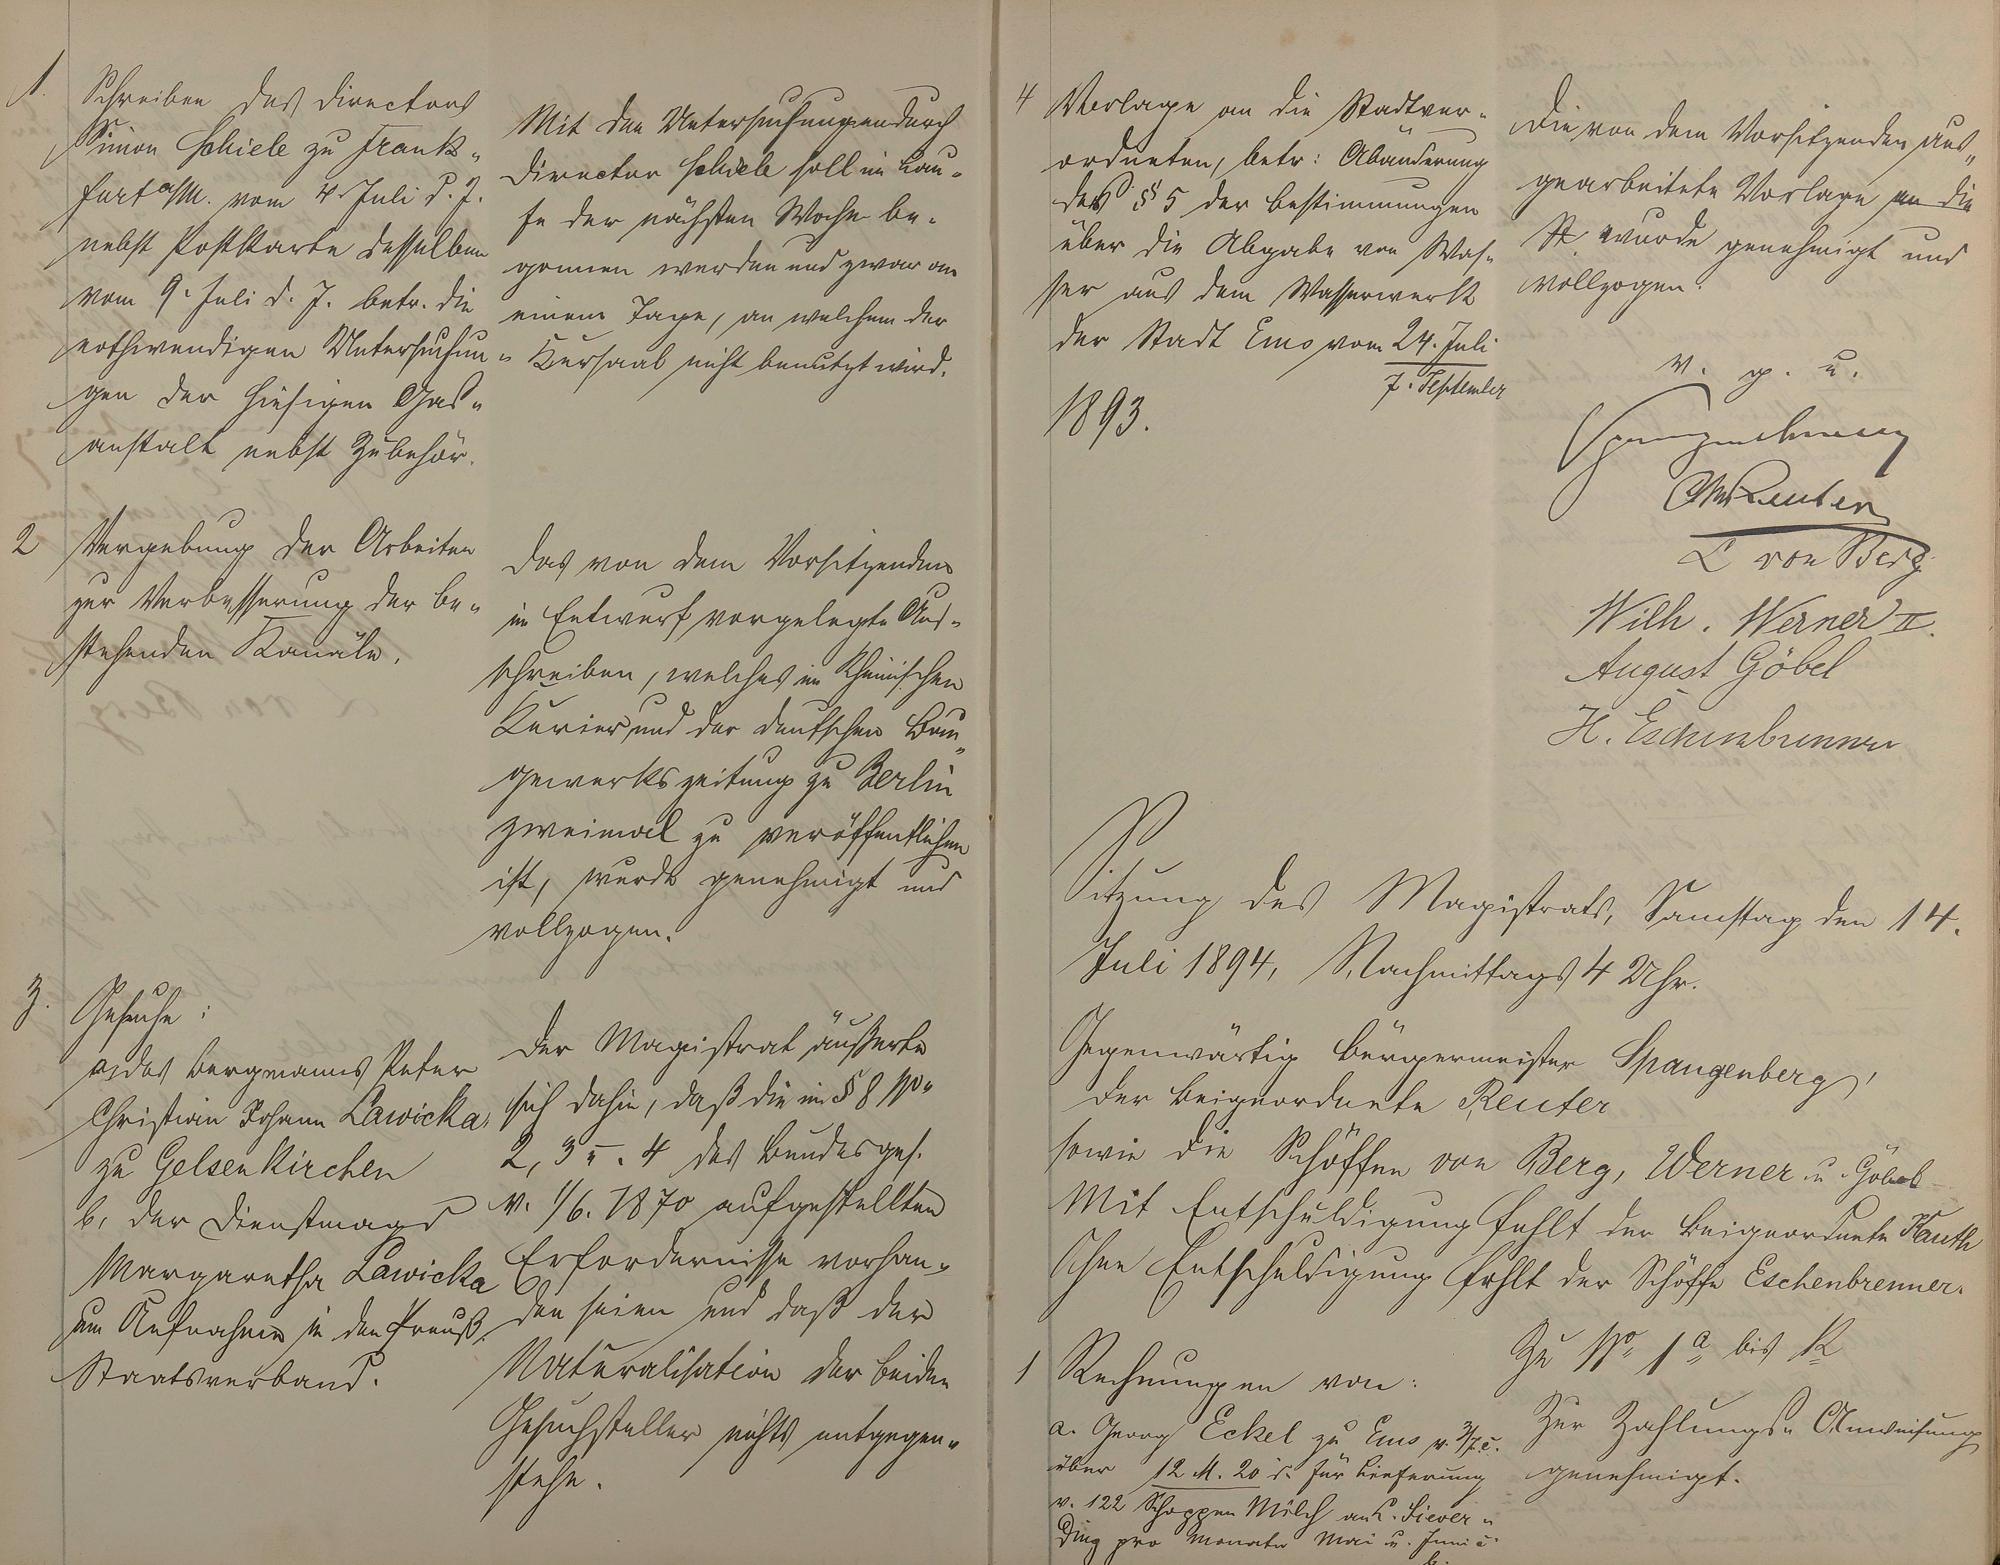 1.
Schreiben des Directors
Simon Schiele zu Frank-
furt a/M. vom 4. Juli d. J.
nebst Postkarte desselben
vom 9. Juli d. J. betr. die
nothwendigen Untersuchun-
gen der hiesigen Gas-
anstalt nebst Zubehör.
Mit den Untersuchungen durch
Director Schiele soll im Lau-
fe der nächsten Woche be-
gonnen werden und zwar an
einem Tage, an welchem der
Kursaal nicht benutzt wird.
2
Vergebung der Arbeiten
zur Verbesserung der be-
stehenden Kanäle.
Das von dem Vorsitzenden
im Entwurf vorgelegte Aus-
schreiben, welches im Rheinischen
Kurier und der deutschen Bau-
gewerkszeitung zu Berlin
zweimal zu veröffentlichen
ist, wurde genehmigt und
vollzogen.
3.
Gesuche:
a, des Bergmanns Peter
Christian Johann Lawicka
zu Gelsenkirchen
b, der Dienstmagd
Margaretha Lawicka
um Aufnahme in den Preuß.
Staatsverband.
Der Magistrat äußerte
sich dahin, daß die im § 8 No
2, 3 u. 4 des Bundesges.
v. 1/6. 1870 aufgestellten
Erfordernisse vorhan-
den seien und daß der
Naturalisation der beiden
Gesuchsteller nichts entgegen-
stehe.
4
Vorlage an die Stadtver-
ordneten, betr: Abänderung
des § 5 der Bestimmungen
über die Abgabe von Was-
ser aus dem Wasserwerk
der Stadt Ems vom 24. Juli
7. September
1893.
Die von dem Vorsitzenden aus-
gearbeitete Vorlage an die
St. wurde genehmigt und
vollzogen.
v. g. u.
Spangenberg
Reuter
L von Berg
Wilh. Werner II.
August Göbel
H. Eschenbrenner
Sitzung des Magistrats, Samstag den 14.
Juli 1894, Nachmittags 4 Uhr.
Gegenwärtig Bürgermeister Spangenberg,
der Beigeordnete Reuter
sowie die Schöffen von Berg, Werner u. Göbel
Mit Entschuldigung fehlt der Beigeordnete Kauth
Ohne Entschuldigung fehlt der Schöffe Eschenbrenner.
1
Rechnungen von:
a. Georg Eckel zu Ems v. 3/7. c.
über 12 M. 20 d. für Lieferung
v. 122 Schoppen Milch an L. Siever-
ding pro Monate Mai u. Juni c.
b.
Zu No 1 a bis k
Zur Zahlungs-Anweisung
genehmigt.